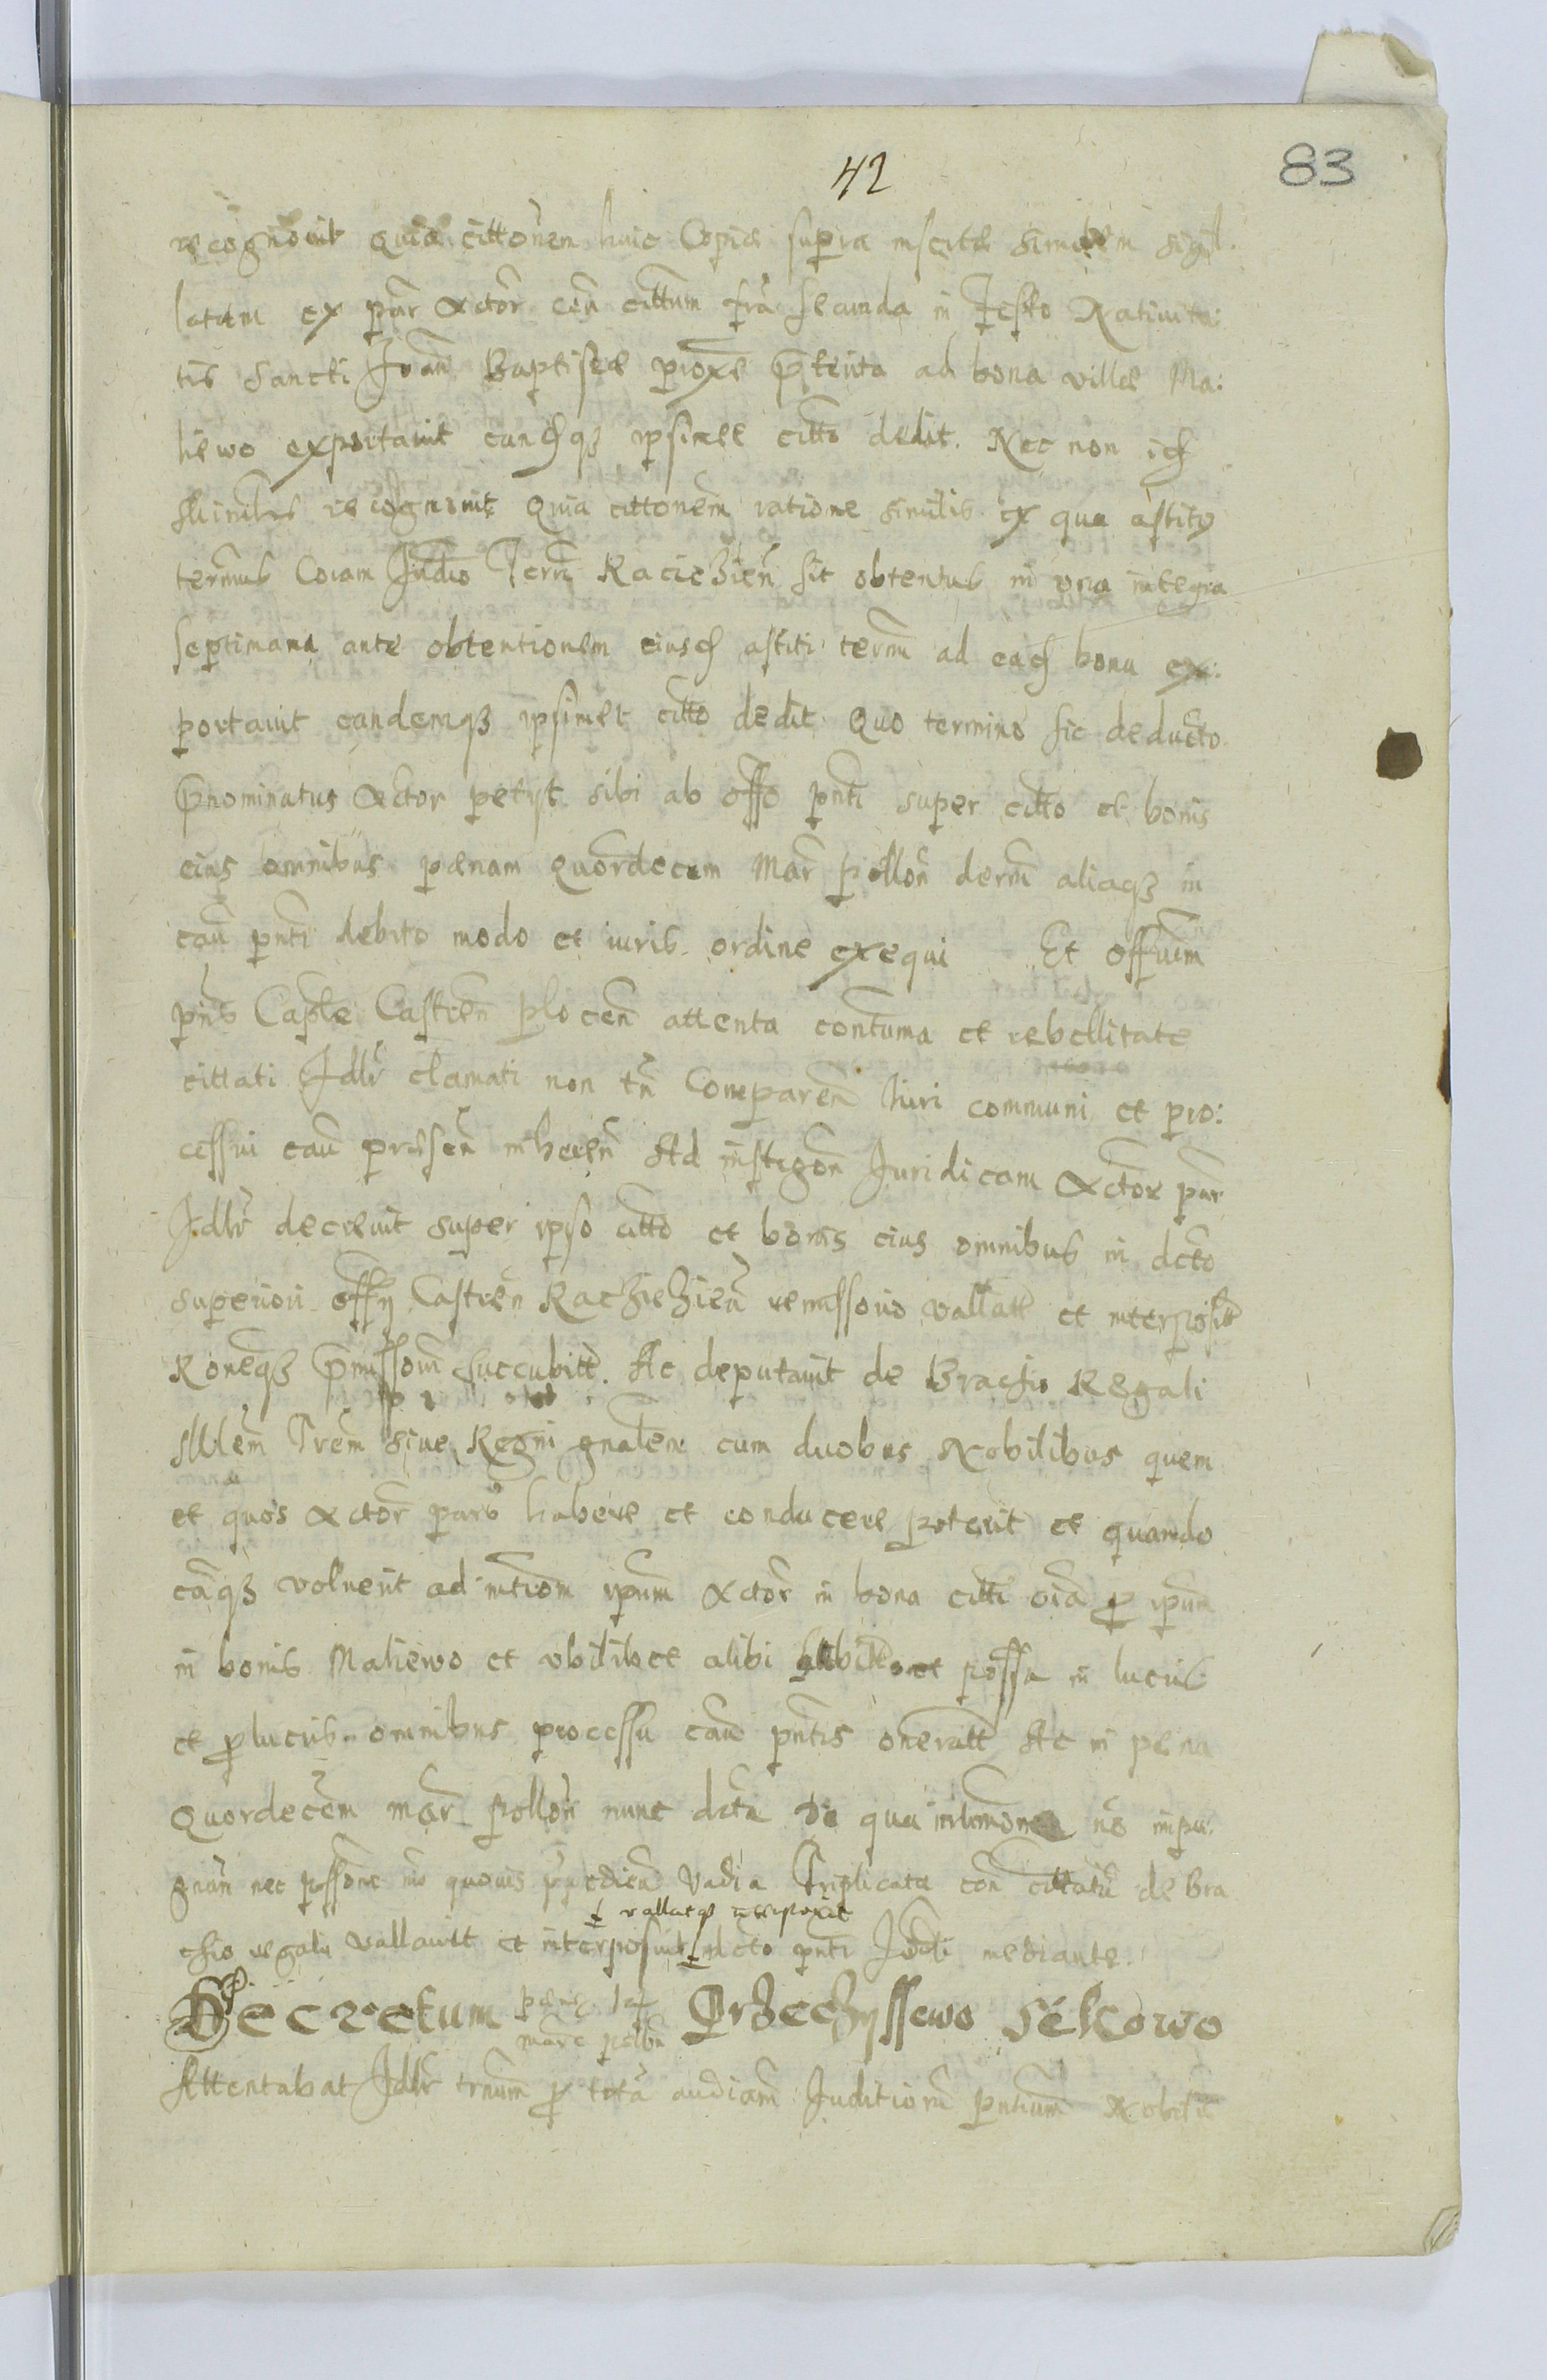 42
83
recognovit quia cittōnem huic Copiæ supra insertæ similem sigil:
latam ex par̄ Actor̄ cōn cittum fr̄a secunda in Festo Nativita:
tis Sancti Joan̄ Baptistæ proxe p̄terita ad bona villæ Ma:
liewo exportavit eandq3 ipsimet citto dedit. Nec non id
recognovit quia cittonem ratione similis ex qua astity
termīus Coram Judio Terr̄i Raciezien̄ sit obtentus in una integra
septimana ante obtentionem eiusd astiti termi ad ead bona ex:
portavit eandemq3 ipsimet citto dedit. Quo termino sic deducto
p̄nominatus Actor petyt sibi ab offo pnti super citto et bonis
eius omnibus pænam quordecem Mar̄ pollōn decerni aliaq3 in
cau pnti debito modo et iuris ordine exequi Et offium
pn̄s Captle Castren̄ plocen̄ attenta contuma et rebellitate
cittati Jdlr̄ clamati non tn̄ Comparen̄ Iuri communi et pro:
cessui cau præsen̄ inhæren̄ Ad instigōn Juridicam Actor̄ par̄
Jdlr̄ decrevit super ipso citto et bonis eius omnibus in dcto
superiori offy Castren̄ Raczieziēn remissorio vallatt et interposit
Roneq3 p̄missorū succubitt. Ac deputavit de Brachio Regali
Mlēm Trēm sive Regni gnalem cum duobus Nobilibus quem
et quos Actor̄ pars habere et conducere poterit et quando
cāq3 voluerit ad intiom ipum Actor̄ in bona citti oīa p ipum
in bonis Maliewo et ubilibet alibi habitt et possa in lucris
et p lucris omnibus processu cau pntis oneratt Ac in pena
quordecēm mar̄ pollōn nunc dcta De qua ne impu:
gnān nec quovis vadia Triplicata cōn cittatū de bra
vallatq3 interposit
chio regali vallavitt et interposuit dcto pnti Judi mediante.
Decretum pænæ 14 marc polon Przeczyssewo Selkowo
Attentabat Jdlr̄ trnum p tota audiam Juditiorū pntium Nobilis